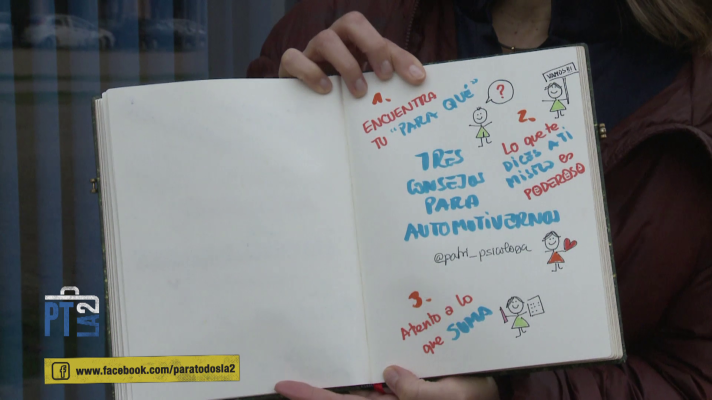 1.
ENCUENTRA
TU "PARA QUÉ"
?
VAMOS!!
2.
Lo que te
DICES A TI
MISMO es
PODEROSO
TRES
CONSEJOS
PARA
AUTOMOTIVARNOS
@patri_psicologa
3.
Atento a lo
que SUMA
PT
LA2
www.facebook.com/paratodosla2